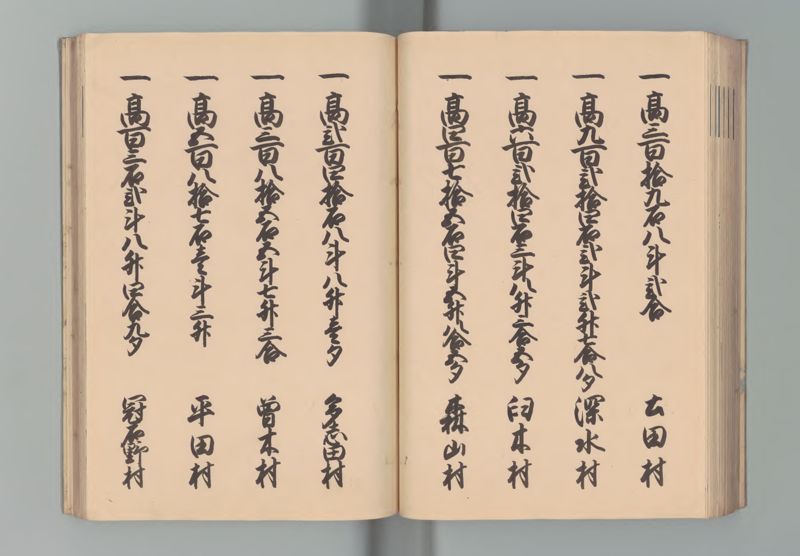 一高三百拾九石八斗弐合 太田村
一高九百弐拾四石弐斗弐升七合八夕 深水村
一高六百弐拾四石三斗八升三合五夕 臼木村
一高四百七拾五石四斗五升八合五夕 森山村
一高弐百四拾石八斗八升壱夕 多志田村
一高三百八拾五石五斗七升三合 曽木村
一高五百八拾七石壱斗三升 平田村
一高百三石弐斗八升四合九夕 冠石野村